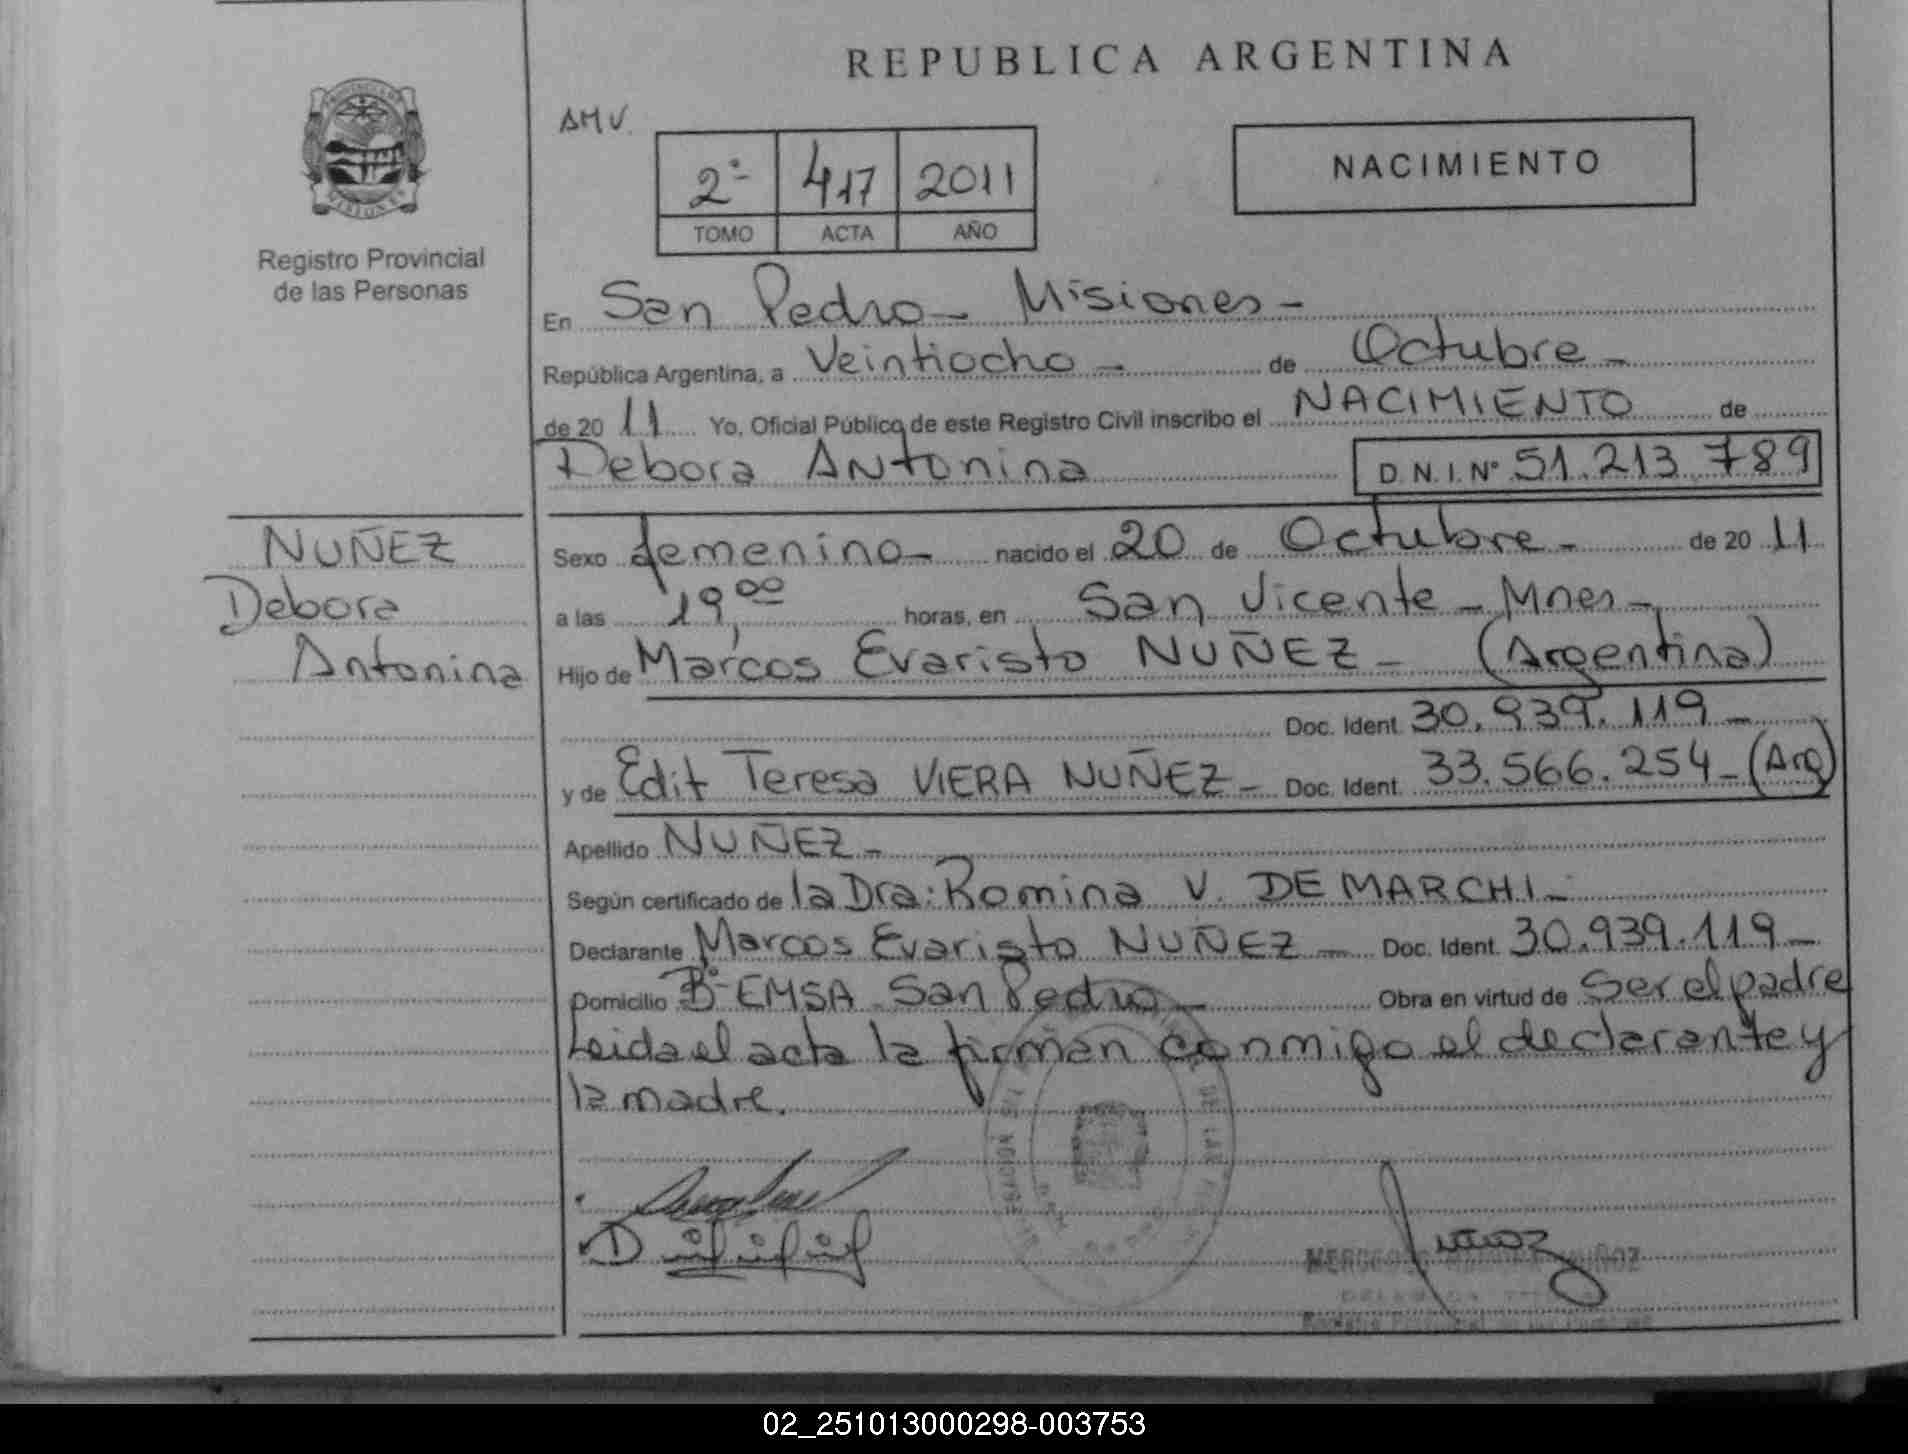 REPUBLICA ARGENTINA
AMV.
2º 417 2011
TOMO ACTA AÑO
NACIMIENTO
PROVINCIA DE
MISIONES
Registro Provincial
de las Personas
En San Pedro - Misiones -
República Argentina, a Veintiocho - de Octubre -
de 20 11 Yo, Oficial Público de este Registro Civil inscribo el NACIMIENTO de
Debora ANtonina D.N.I. Nº 51.213.789
NUÑEZ
Debora
Antonina
Sexo femenino - nacido el 20 de Octubre - de 20 11
a las 19,00 horas, en San Vicente - Mnes -
Hijo de Marcos Evaristo NUÑEZ - (Argentina)
Doc. Ident. 30.939.119 -
y de Edit Teresa VIERA NUÑEZ - Doc. Ident. 33.566.254 - (Arg)
Apellido NUÑEZ -
Según certificado de la Dra: Romina V. DE MARCHI -
Declarante Marcos Evaristo NUÑEZ - Doc. Ident. 30.939.119 -
Domicilio Bº EMSA San Pedro - Obra en virtud de Ser el padre
Leida el acta la firman conmigo el declarante y
la madre.
02_251013000298-003753